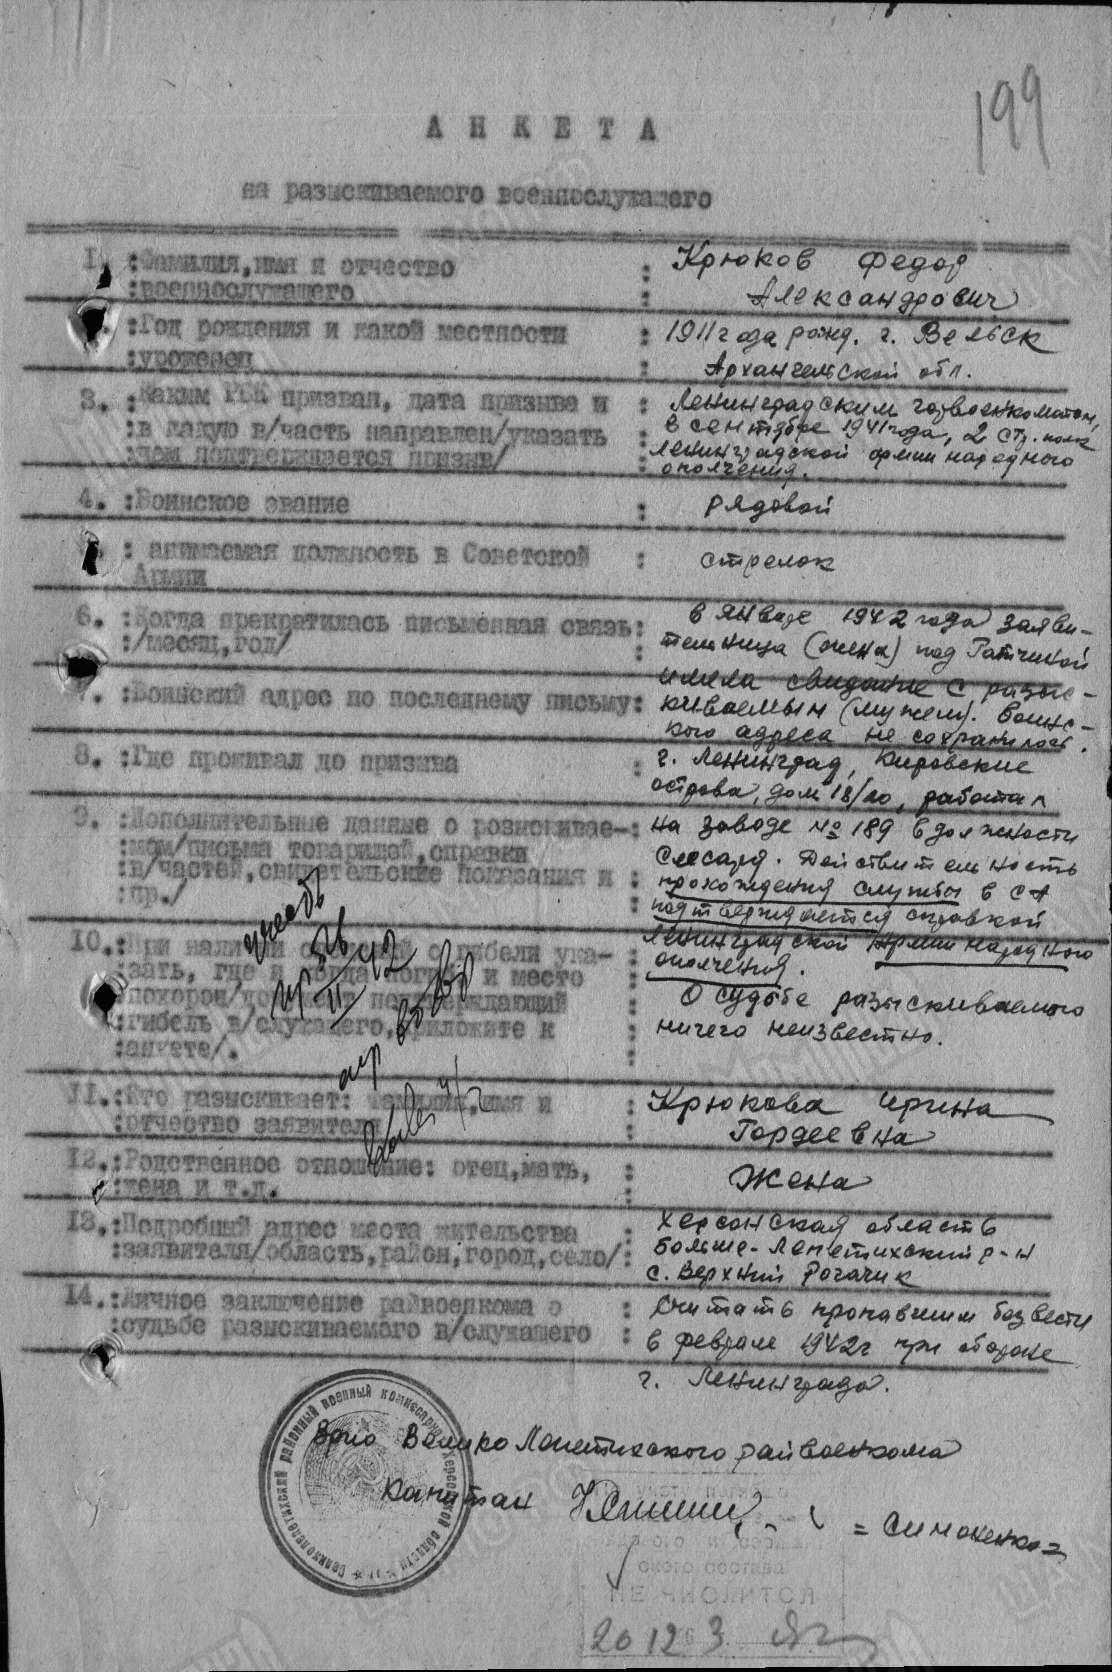 199
АНКЕТА
на разыскиваемого военнослужащего
1. :Фамилия, имя и отчество : Крюков Федор
:военнослужащего : Александрович
:Год рождения и какой местности : 1911 года рожд. г. Вельск
:уроженец Архангельской обл.
3. :Каким РВК призван, дата призыва и : Ленинградским горвоенкоматом,
:в какую в/часть направлен/указать : в сентябре 1941 года, 2 стр. полк
:чем подтверждается призыв/ : Ленинградской армии народного
ополчения.
4. :Воинское звание : рядовой
: анимаемая должность в Советской : стрелок
Армии
6. :Когда прекратилась письменная связь: в январе 1942 года заяви-
:/месяц,год/ : тельница (жена) под Гатчиной
имела свидание с разыс-
7. :Воинский адрес по последнему письму: киваемым (мужем). Воинс-
кого адреса не сохранилось.
8. :Где проживал до призыва : г. Ленинград, Кировские
острова, дом 18/20, работал
9. :Дополнительные данные о розыскивае-: на заводе № 189 в должности
:мом/письма товарищей,справки слесаря. Действительность
:в/частей,свидетельские показания и : прохождения службы в СА
:пр./ подтверждается справкой
10.:При наличии сведений о гибели ука- : Ленинградской Армии народного
:зать, где и когда погиб и место : ополчения.
:похорон/документ подтверждающий : О судьбе разыскиваемого
:гибель в/служащего,приложите к : ничего неизвестно.
:анкете/.
учесть
пр б/в
II 42
11.:Кто разыскивает: фамилия,имя и : Крюкова Ирина
:отчество заявителя : Гордеевна
12.:Родственное отношение: отец,мать, : Жена
:жена и т.д.
13.:Подробный адрес места жительства : Херсонская область
:заявителя/область,район,город,село/: Больше-Лепетихский р-н
с. Верхний Рогачик
14.:Личное заключение райвоенкома о : Считать пропавшим без вести
:судьбе разыскиваемого в/служащего : в феврале 1942г при обороне
г. Ленинграда.
Великолепетихский районный военный комиссариат Херсонской области
Врио Велико Лепетихского райвоенкома
Капитан = Симоненко =
ского состава
НЕ ЧИСЛИТСЯ
20 12 3